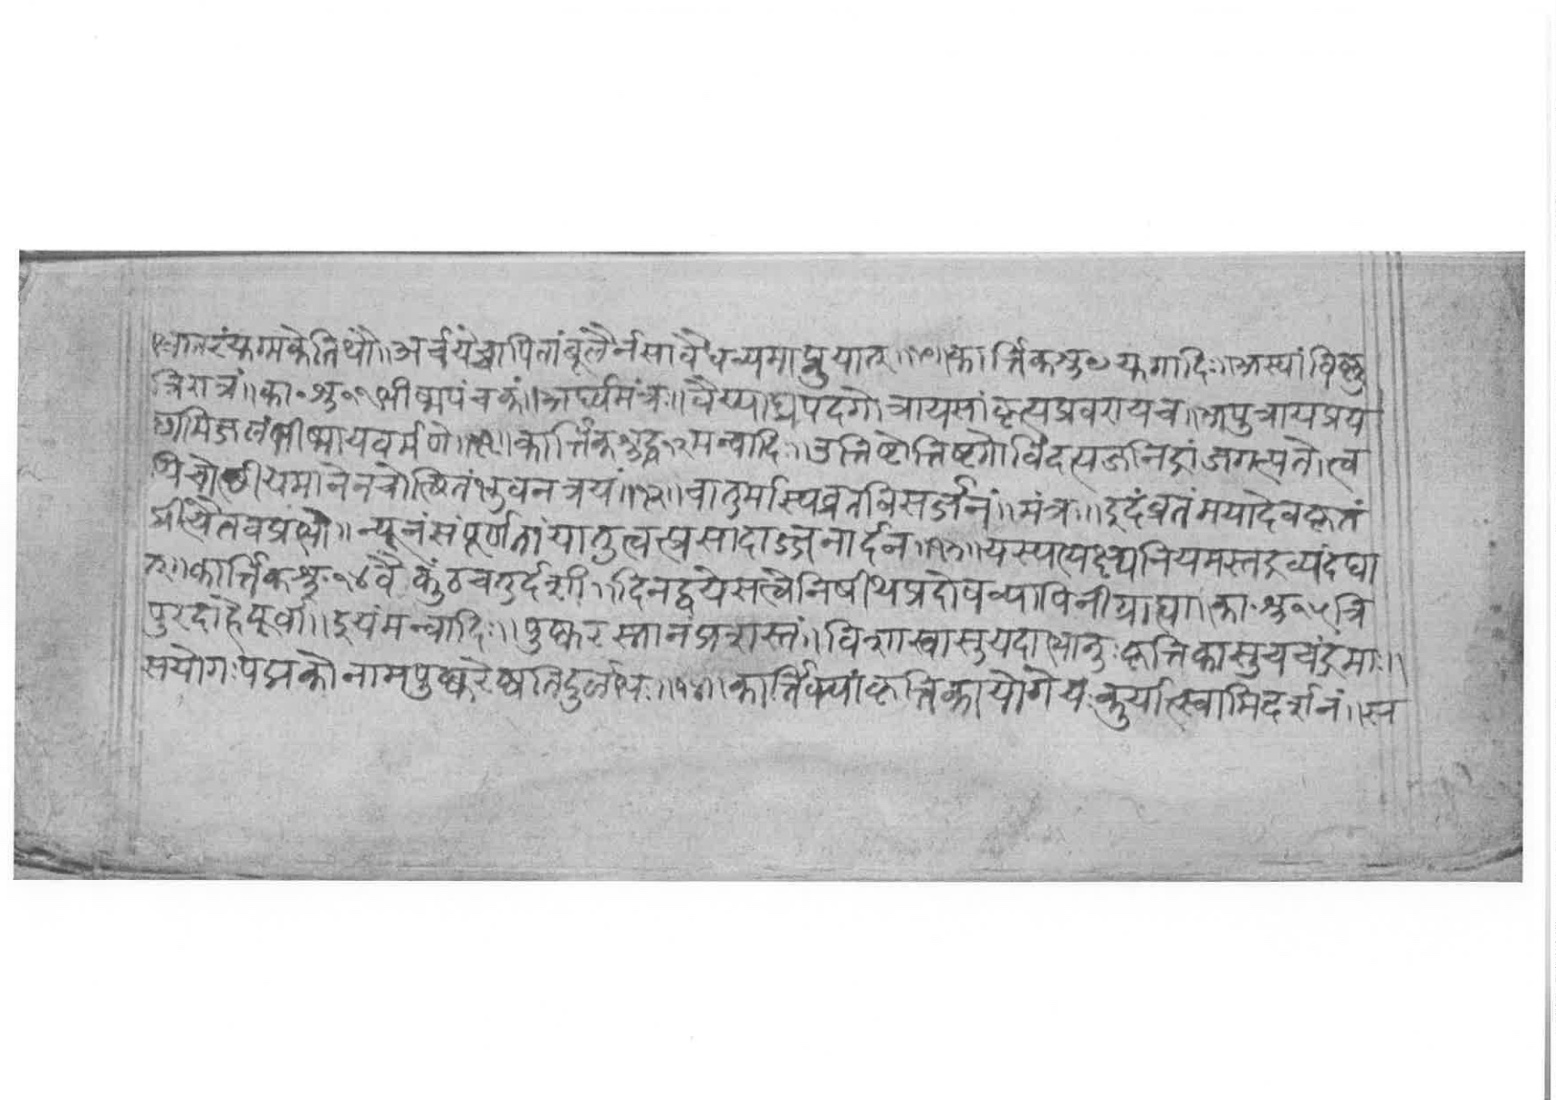 भ्रातरं युग्मके तिथौ॥ अर्चयेच्चापि तांबूलैर्न सा वैधव्यमाप्नुयात्॥ कार्त्तिकशु॰९युगादिः॥ अस्यां विष्णु
त्रिरात्रं॥ का॰शु॰११भीष्मपंचकं॥ अर्घ्यमंत्रः॥ वैय्याघ्रपदगोत्राय सांकृत्यप्रवराय च॥ अपुत्राय प्रय
छामि जलं भीष्माय वर्मणे॥ कार्त्तिकशुद्ध१२मन्वादिः॥ उत्तिष्टोत्तिष्टगोविंद त्यजनिद्रां जगत्पते॥ त्व
यि चोत्थीयमानेन चोत्थितं भुवनत्रयं॥ चातुर्मास्यव्रतविसर्ज्जनं॥ मंत्रः॥ इदं व्रतं मया देव कृतं
प्रीत्यै तव प्रभो॥ न्यूनं संपूर्णतां यातु त्वत्प्रसादाज्जनार्दन॥ यस्य त्यक्ष्य नियमस्तद्रव्यं दद्या
त्॥ कार्त्तिकशु॰१४वैकुंठचतुर्दशी॥ दिनद्वये सत्वे निषीथप्रदोषव्यापिनी ग्राह्या॥ का॰शु॰१५त्रि
पुरदाहे पूर्वा॥ इयं मन्वादिः॥ पुष्करस्नानं प्रशस्तं॥ विशाखासु यदा भानुः कृत्तिकासु च चंद्रमाः॥
स योगः पद्मको नाम पुष्करेष्वतिदुर्लभः॥ कार्त्तिक्यां कृत्तिकायोगे यः कुर्यात्स्वामिदर्शनं॥ स्व